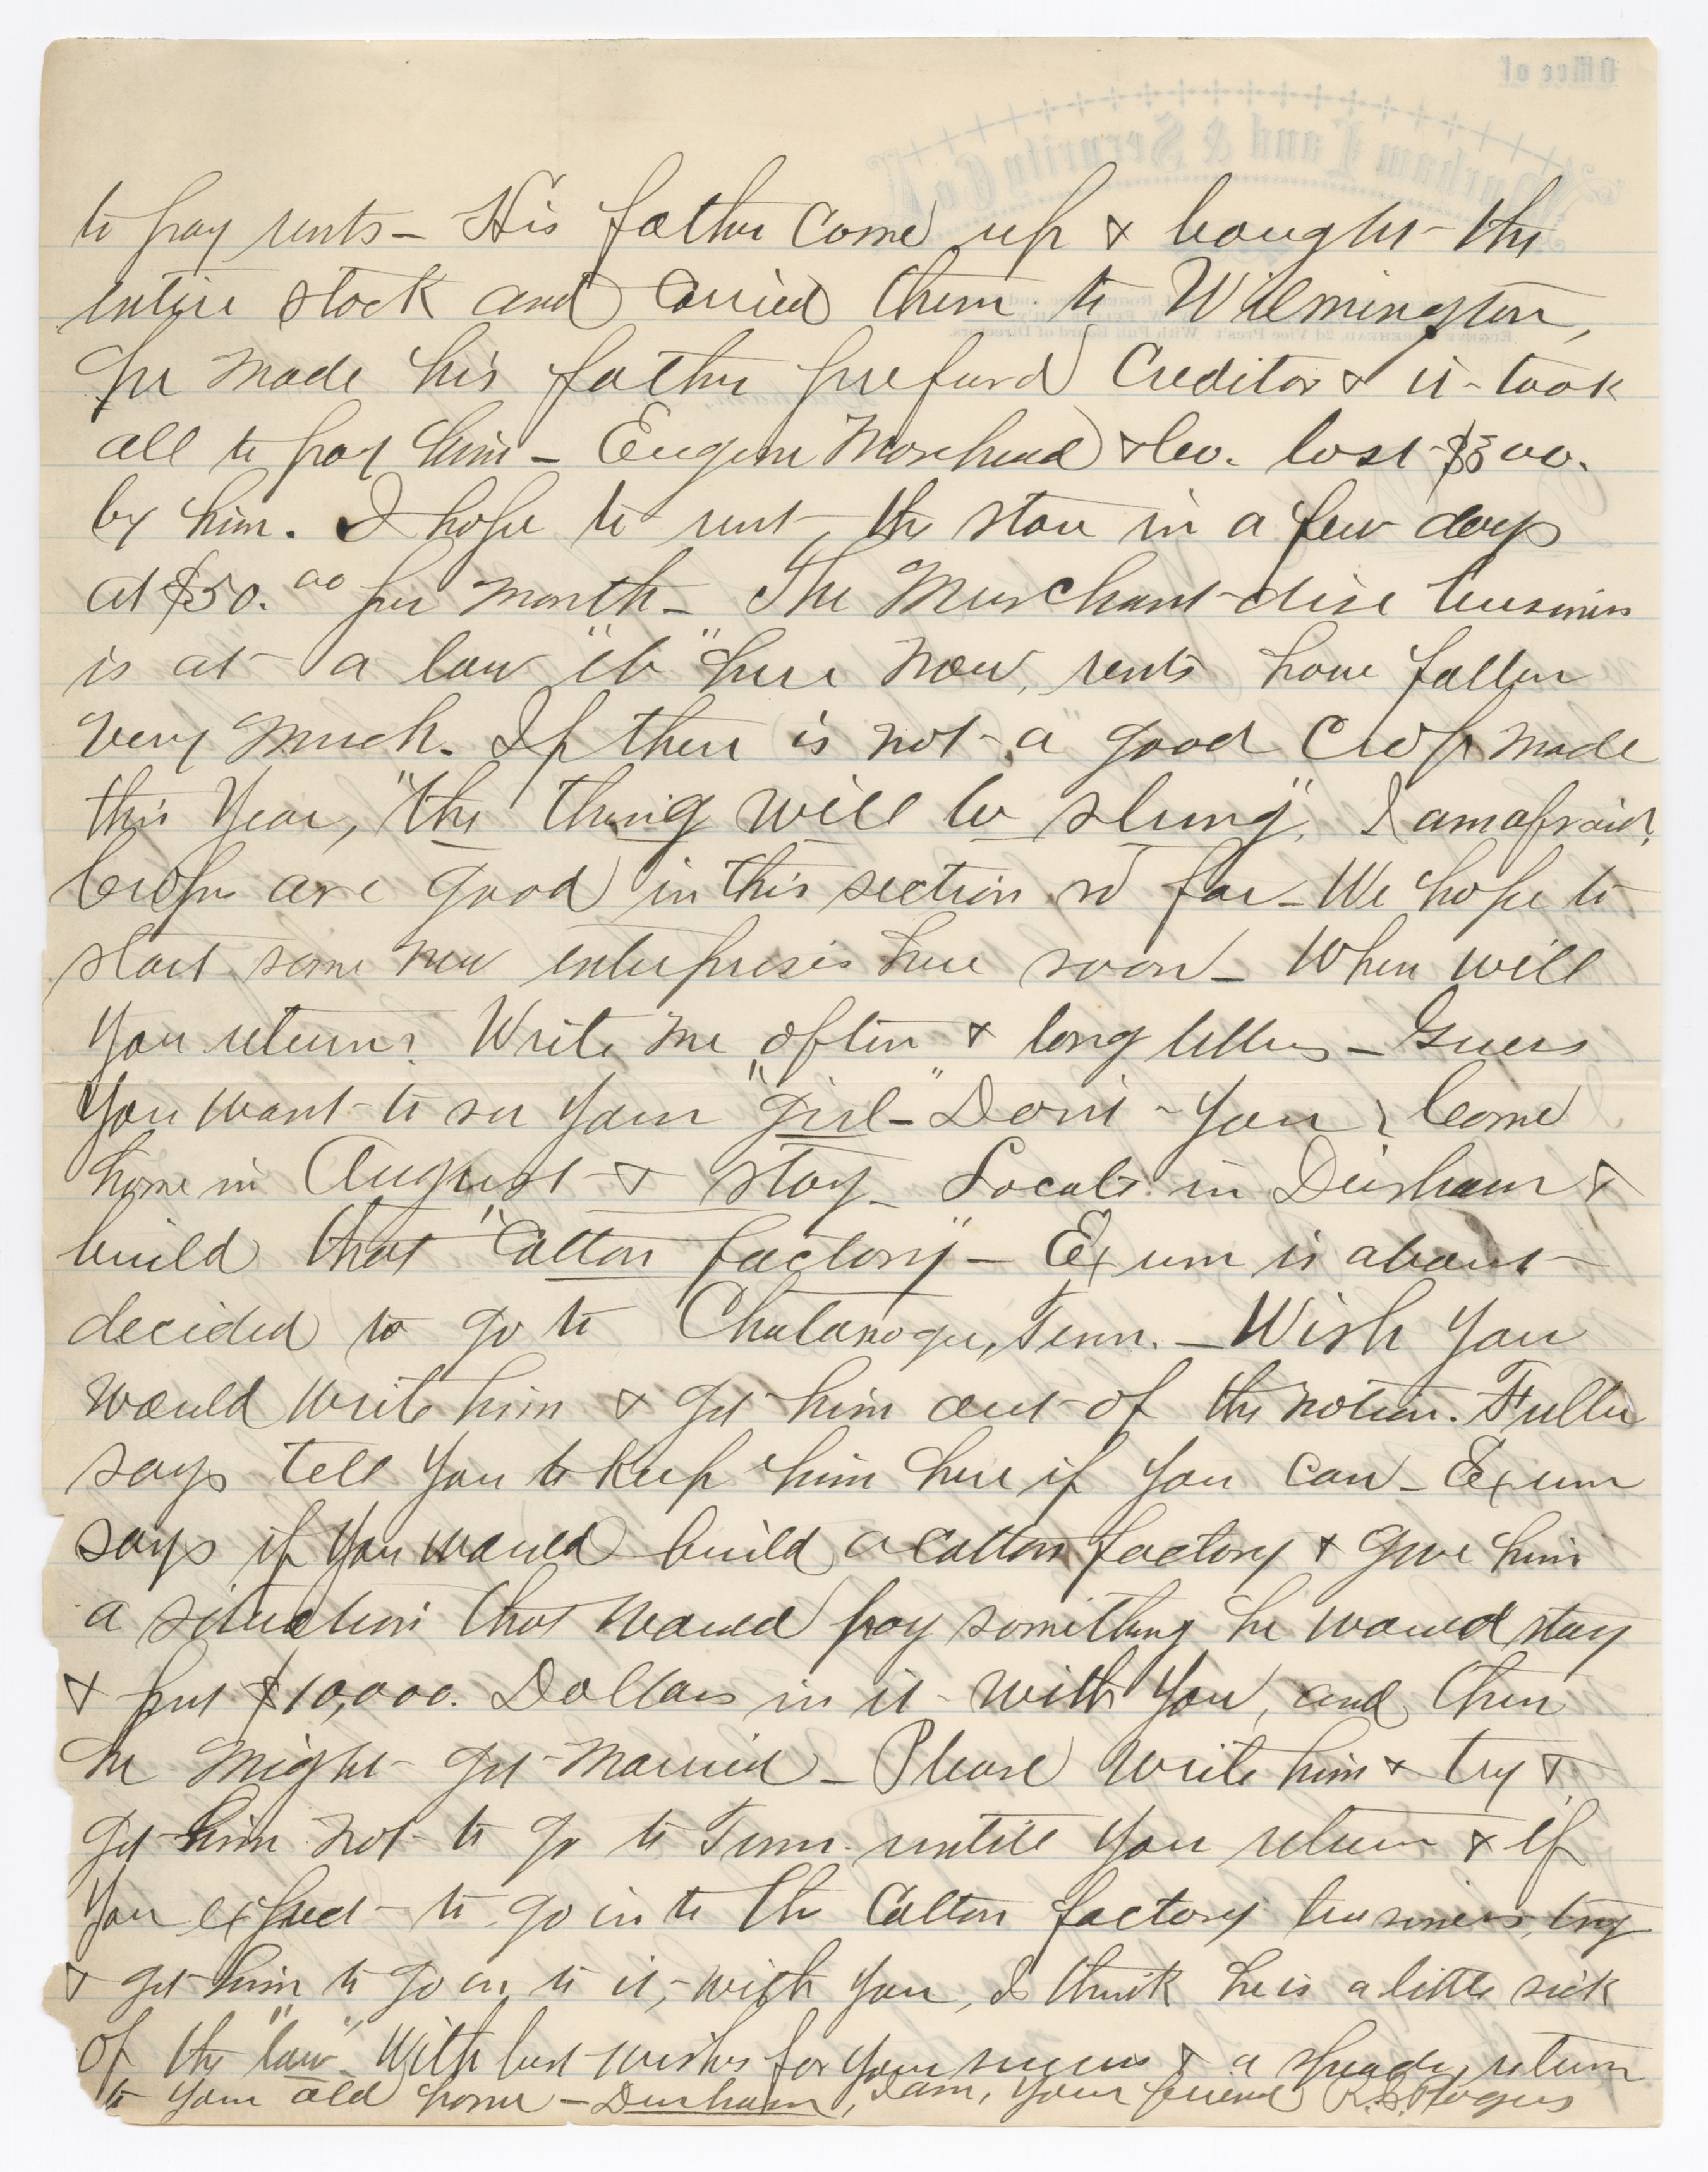 Office of
Durham Land & Security Co.
to pay rents — His father come up & bought the
entire stock and carried them to Wilmington,
he made his father prefurd Creditor & it took
all to pay him — Eugene Morehead & Co. lost $300.
by him. I hope to rent the store in a few days
at $50.00 per month — The Merchant-dise business
is at a low "eb" here now, rents have fallen
very much. If there is not a good Crop made
this Year, "the thing will be slung", I am afraid.
Crops are good in this section so far — We hope to
start some new enterprises here soon — When will
You return? Write me often & long letters — Guess
You want to see Your "girl" — Dont You? Come
home in August & stay — Locate in Durham &
build that "Cotton factory" — Exum is about
decided to go to Chatanoga, Tenn. — Wish You
would write him & get him out of the notion. Fuller
says tell You to keep him here if You can — Exum
says if You would build a Cotton factory & give him
a situation that would pay something he would stay
& put $10,000. Dollars in it with You, and then
he might get married — Please write him & try &
get him not to go to Tenn. untill You return & if
You expect to go in to the Cotton factory business, try
& get him to go in to it, with You, I think he is a little sick
of the "law". With best wishes for Your success & a speady return
to Your old home — Durham, I am, Your friend R.H. Rogers